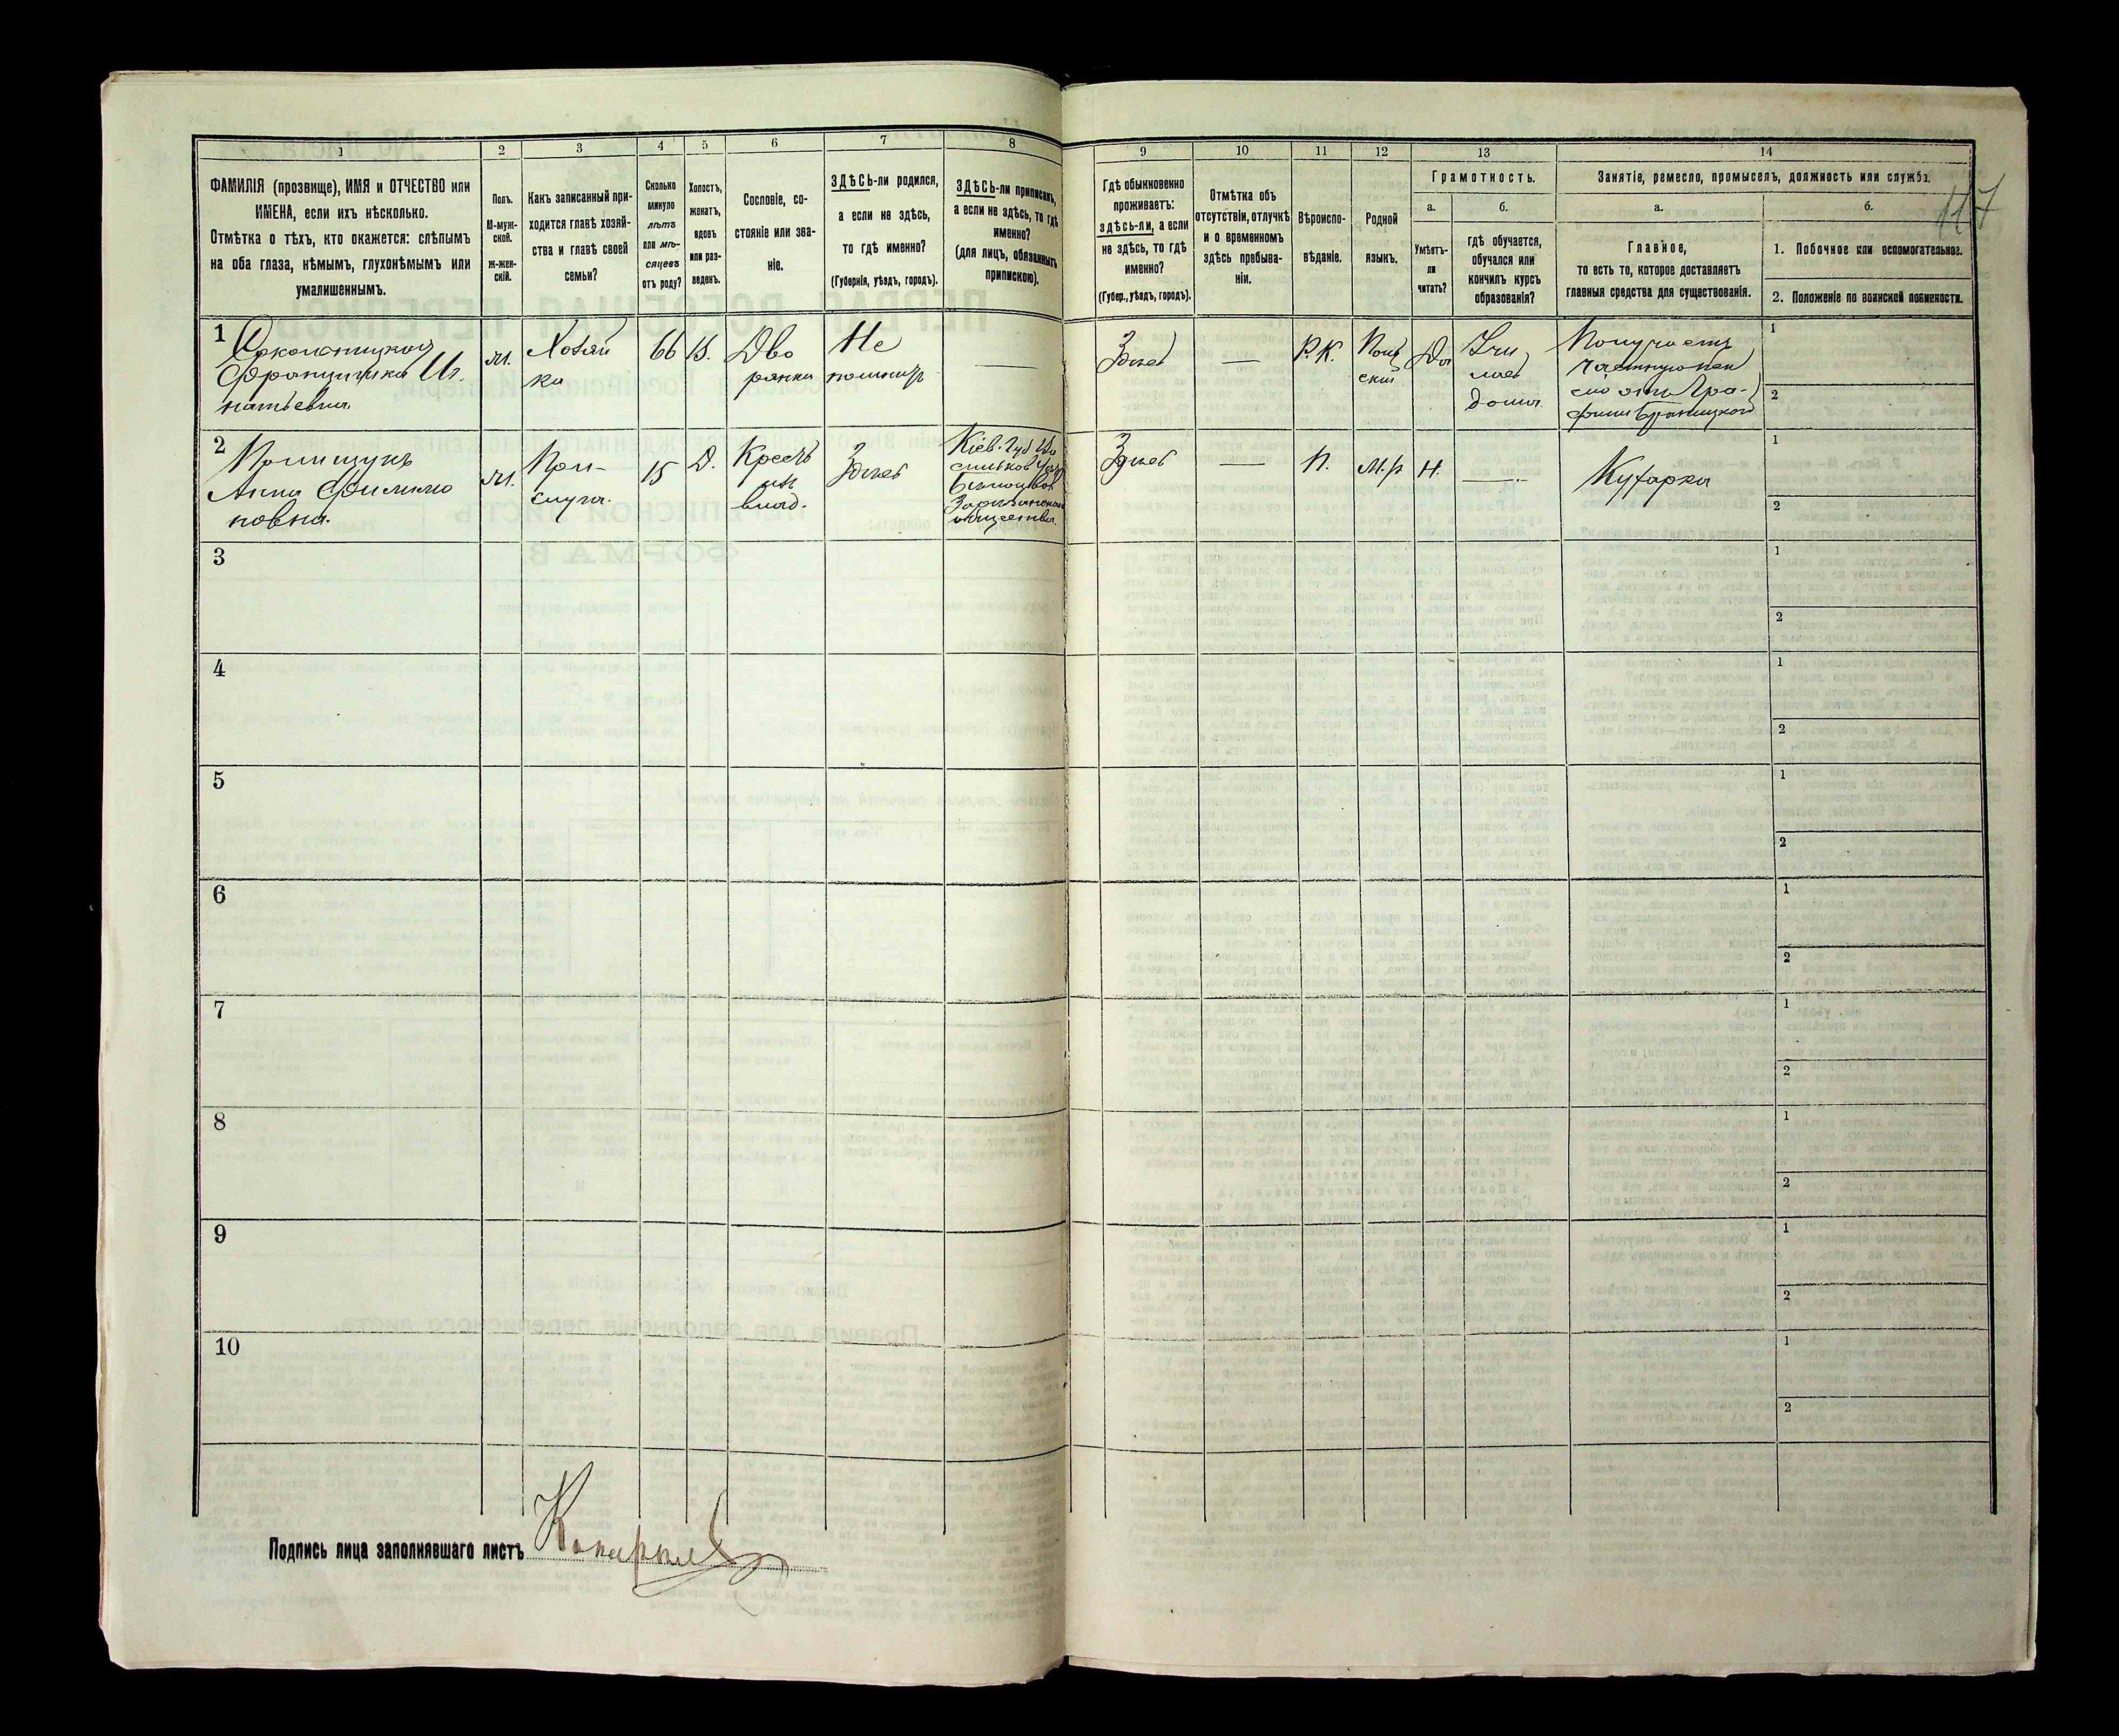 1
2
3
4
5
6
7
8
ФАМИЛІЯ (прозвище), ИМЯ и ОТЧЕСТВО или
ИМЕНА, если ихъ нѣсколько.
Отмѣтка о тѣхъ, кто окажется: слѣпымъ
на оба глаза, нѣмымъ, глухонѣмымъ или
умалишеннымъ.
Полъ.
М-муж-
ской.
Ж-жен-
скій.
Какъ записанный при-
ходится главѣ хозяй-
ства и главѣ своей
семьи?
Сколько
минуло
лѣтъ
или мѣ-
сяцевъ
отъ роду?
Холостъ,
женатъ,
вдовъ
или раз-
веденъ.
Сословіе, со-
стояніе или зва-
ніе.
ЗДѢСЬ-ли родился,
а если не здѣсь,
то гдѣ именно?
(Губернія, уѣздъ, городъ).
ЗДѢСЬ-ли приписанъ,
а если не здѣсь, то гдѣ
именно?
(для лицъ, обязанныхъ
припискою).
9
10
11
12
13
14
Гдѣ обыкновенно
проживаетъ:
здѣсь-ли, а если
не здѣсь, то гдѣ
именно?
(Губер., уѣздъ, городъ).
Отмѣтка объ
отсутствіи, отлучкѣ
и о временномъ
здѣсь пребыва-
ніи.
Вѣроиспо-
вѣданіе.
Родной
языкъ.
Грамотность.
а.
Умѣетъ-
ли
читать?
б.
гдѣ обучается,
обучался или
кончилъ курсъ
образованія?
Занятіе, ремесло, промыселъ, должность или служба.
а.
Главное,
то есть то, которое доставляетъ
главныя средства для существованія.
б.
1. Побочное или вспомогательное.
2. Положеніе по воинской повинности.
117
1
Францишка Иг
натьевна
Хозяй
ка
66
В.
Дво
рянка
Не
—
Здѣсь
—
Р.К.
Поль
скій
Да
дома
Получаетъ
1
2
2
Полищукъ
Анна Филимо
новна.
При-
слуга.
15
Д.
Крест
влад.
Здѣсь
Кіев. Губ
общества
Здѣсь
—
П.
М.р
Н.
—
Кухарка
1
2
3
1
2
4
1
2
5
1
2
6
1
2
7
1
2
8
1
2
9
1
2
10
1
2
Подпись лица заполнявшаго листъ